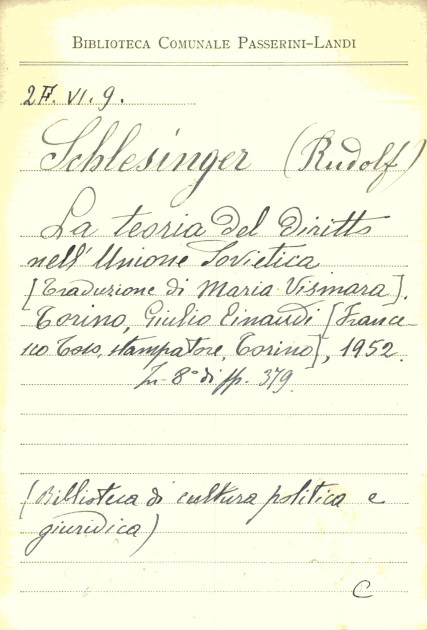 BIBLIOTECA COMUNALE PASSERINI-LANDI
2F. VI. 9.
Schlesinger (Rudolf)
La teoria del diritto
nell'Unione Sovietica
[Traduzione di Maria Vismara].
Torino, Giulio Einaudi [France-
sco Toso, stampatore, Torino], 1952.
In-8° di pp. 379.
(Biblioteca di cultura politica e
giuridica)
C